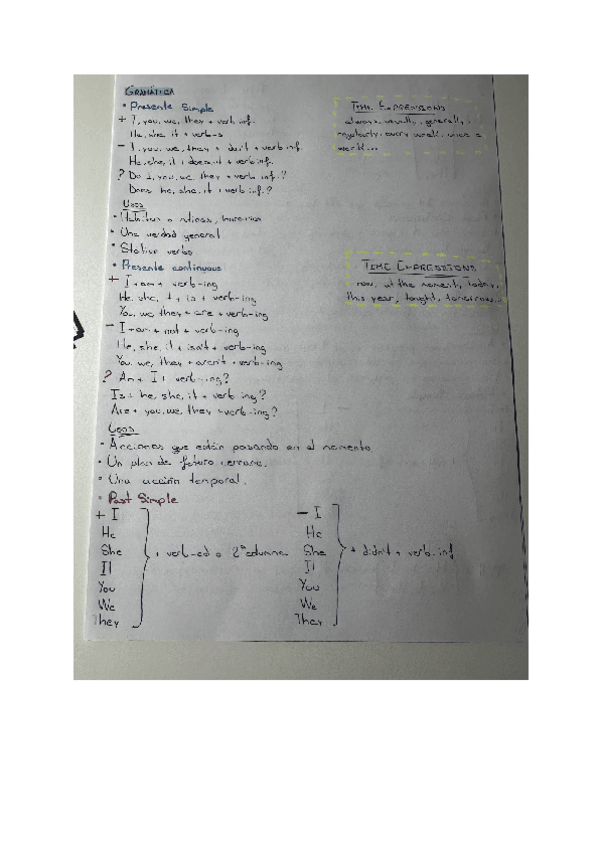 GRAMÁTICA
• Presente Simple
+ I, you, we, they + verb inf.
He, she, it + verb-s
- I, you, we, they + don't + verb inf.
He, she, it + doesn't + verb inf.
? Do I, you, we, they + verb inf.?
Does he, she, it + verb inf.?
TIME EXPRESSIONS
always, usually, generally,
regularly, every week, once a
week...
Usos
• Hábitos o rutinas, horarios
• Una verdad general
• Stative verbs
• Presente continuous
+ I + am + verb-ing
He, she, it + is + verb-ing
You, we, they + are + verb-ing
- I + am + not + verb-ing
He, she, it + isn't + verb-ing
You, we, they + aren't + verb-ing
? Am + I + verb-ing?
Is + he, she, it + verb ing?
Are + you, we, they + verb-ing?
TIME EXPRESSIONS
now, at the moment, today,
this year, tonight, tomorrow...
Usos
• Acciones que están pasando en el momento
• Un plan de futuro cercano.
• Una acción temporal.
• Past Simple
+ I
He
She
It
You
We
They
+ verb-ed o 2ª columna
- I
He
She
It
You
We
They
+ didn't + verb-inf